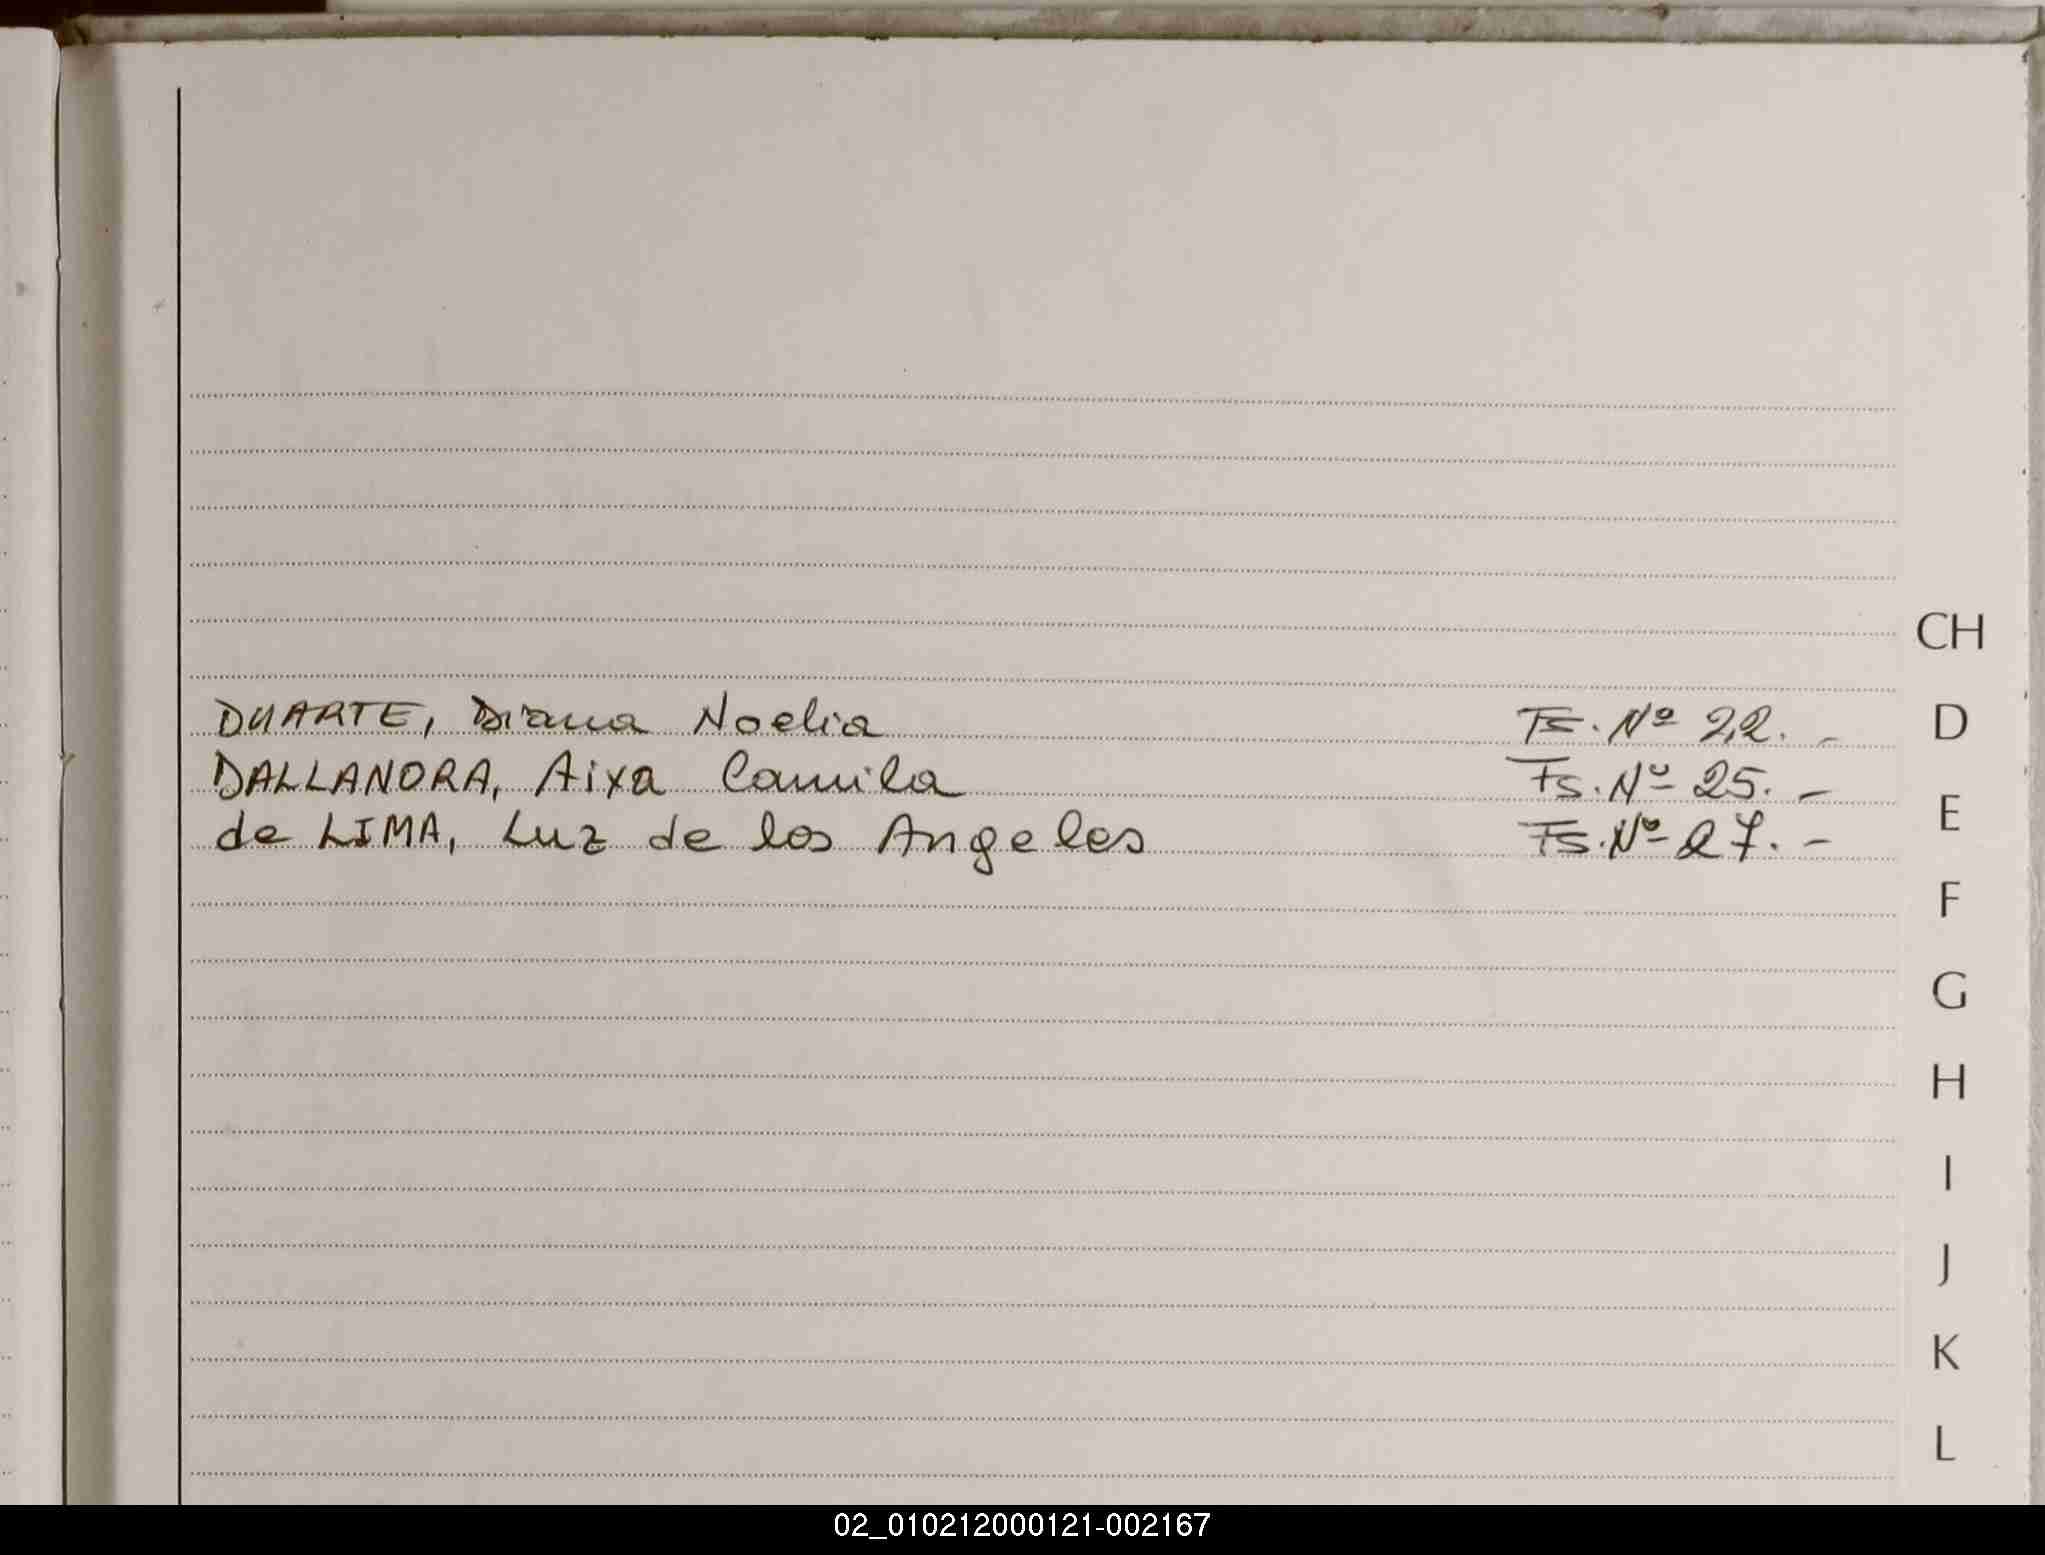 CH
DUARTE, Diana Noelia Fs. Nº 22. -
D
DALLANORA, Aixa Camila Fs. Nº 25. -
E
de LIMA, Luz de los Angeles Fs. Nº 27. -
F
G
H
I
J
K
L
02_010212000121-002167